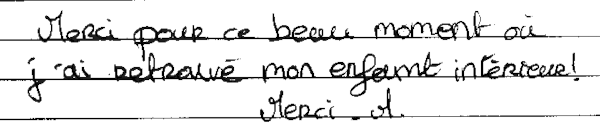 Merci pour ce beau moment où
j'ai retrouvé mon enfant intérieur!
Merci. A.